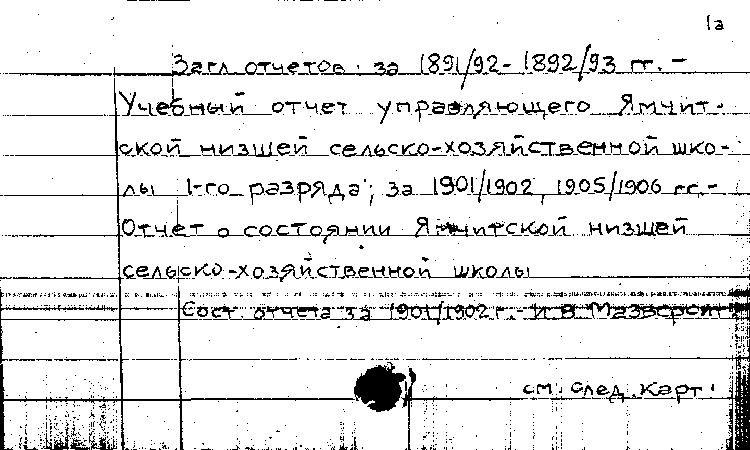 1а
Загл. отчетов: за 1891/92 - 1892/93 гг. -
Учебный отчет управляющего Ямчит-
ской низшей сельско-хозяйственной шко-
лы 1-го разряда; за 1901/1902, 1905/1906 гг. -
Отчет о состоянии Ямчитской низшей
сельско-хозяйственной школы
Сост. отчета за 1901/1902 г. - И. В.
см. след. карт.